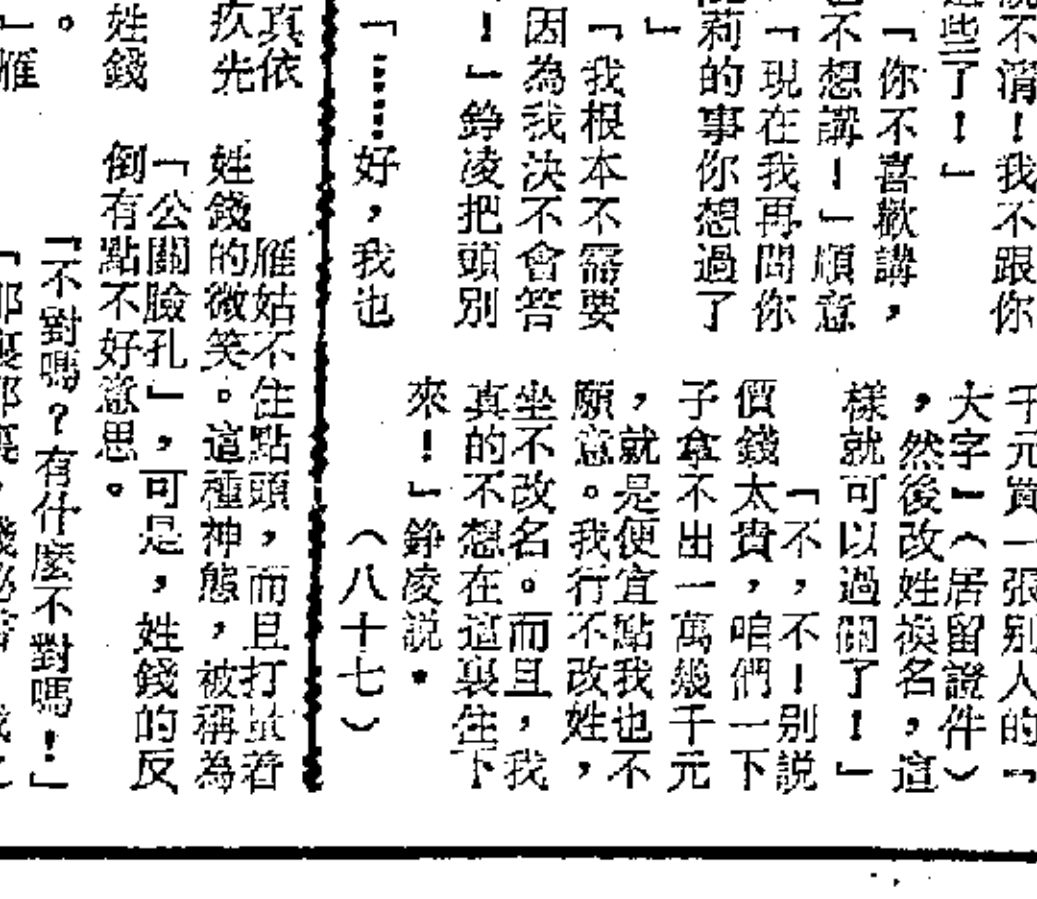 說不清！我不跟你
些了！」
「你不喜歡講，
不想講！」順意
「現在我再問你
莉的事你想過了
」
「我根本不需要
因為我決不會答
！」錚凌把頭別
「……好，我也
千元買一張別人的「
大字」（居留證件）
，然後改姓換名，這
樣就可以過關了！」
「不，不！別説
價錢太貴，咱們一下
子拿不出一萬幾千元
，就是便宜點我也不
願意。我行不改姓，
坐不改名。而且，我
真的不想在這裏住下
來！」錚凌說。
（八十七）
真依
疚先
姓錢
。
」雁
雁姑不住點頭，而且打量着
姓錢的微笑。這種神態，被稱為
「公關臉孔」，可是，姓錢的反
倒有點不好意思。
「不對嗎？有什麼不對嗎！」